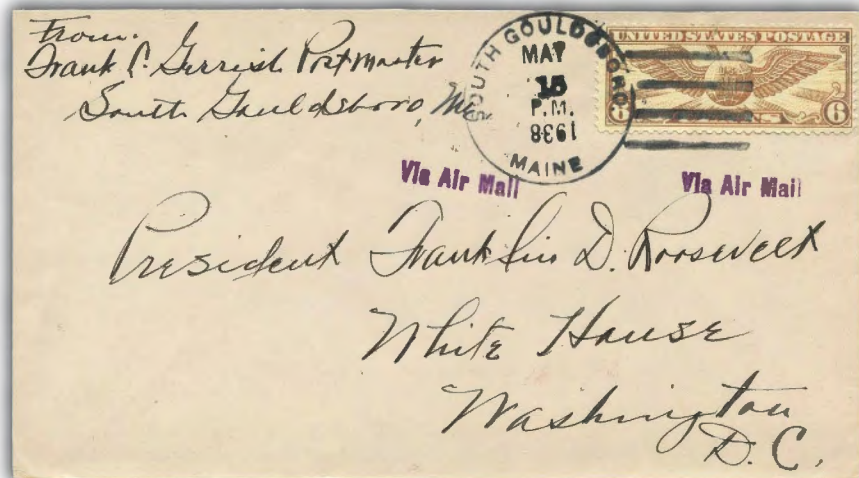 From.
Frank C. Gerrish Postmaster
South Gouldsboro, Me
SOUTH GOULDSBORO
MAY
15
P.M.
1938
MAINE
UNITED STATES POSTAGE
6 6
Via Air Mail Via Air Mail
President Franklin D. Roosevelt
White House
Washington
D. C.